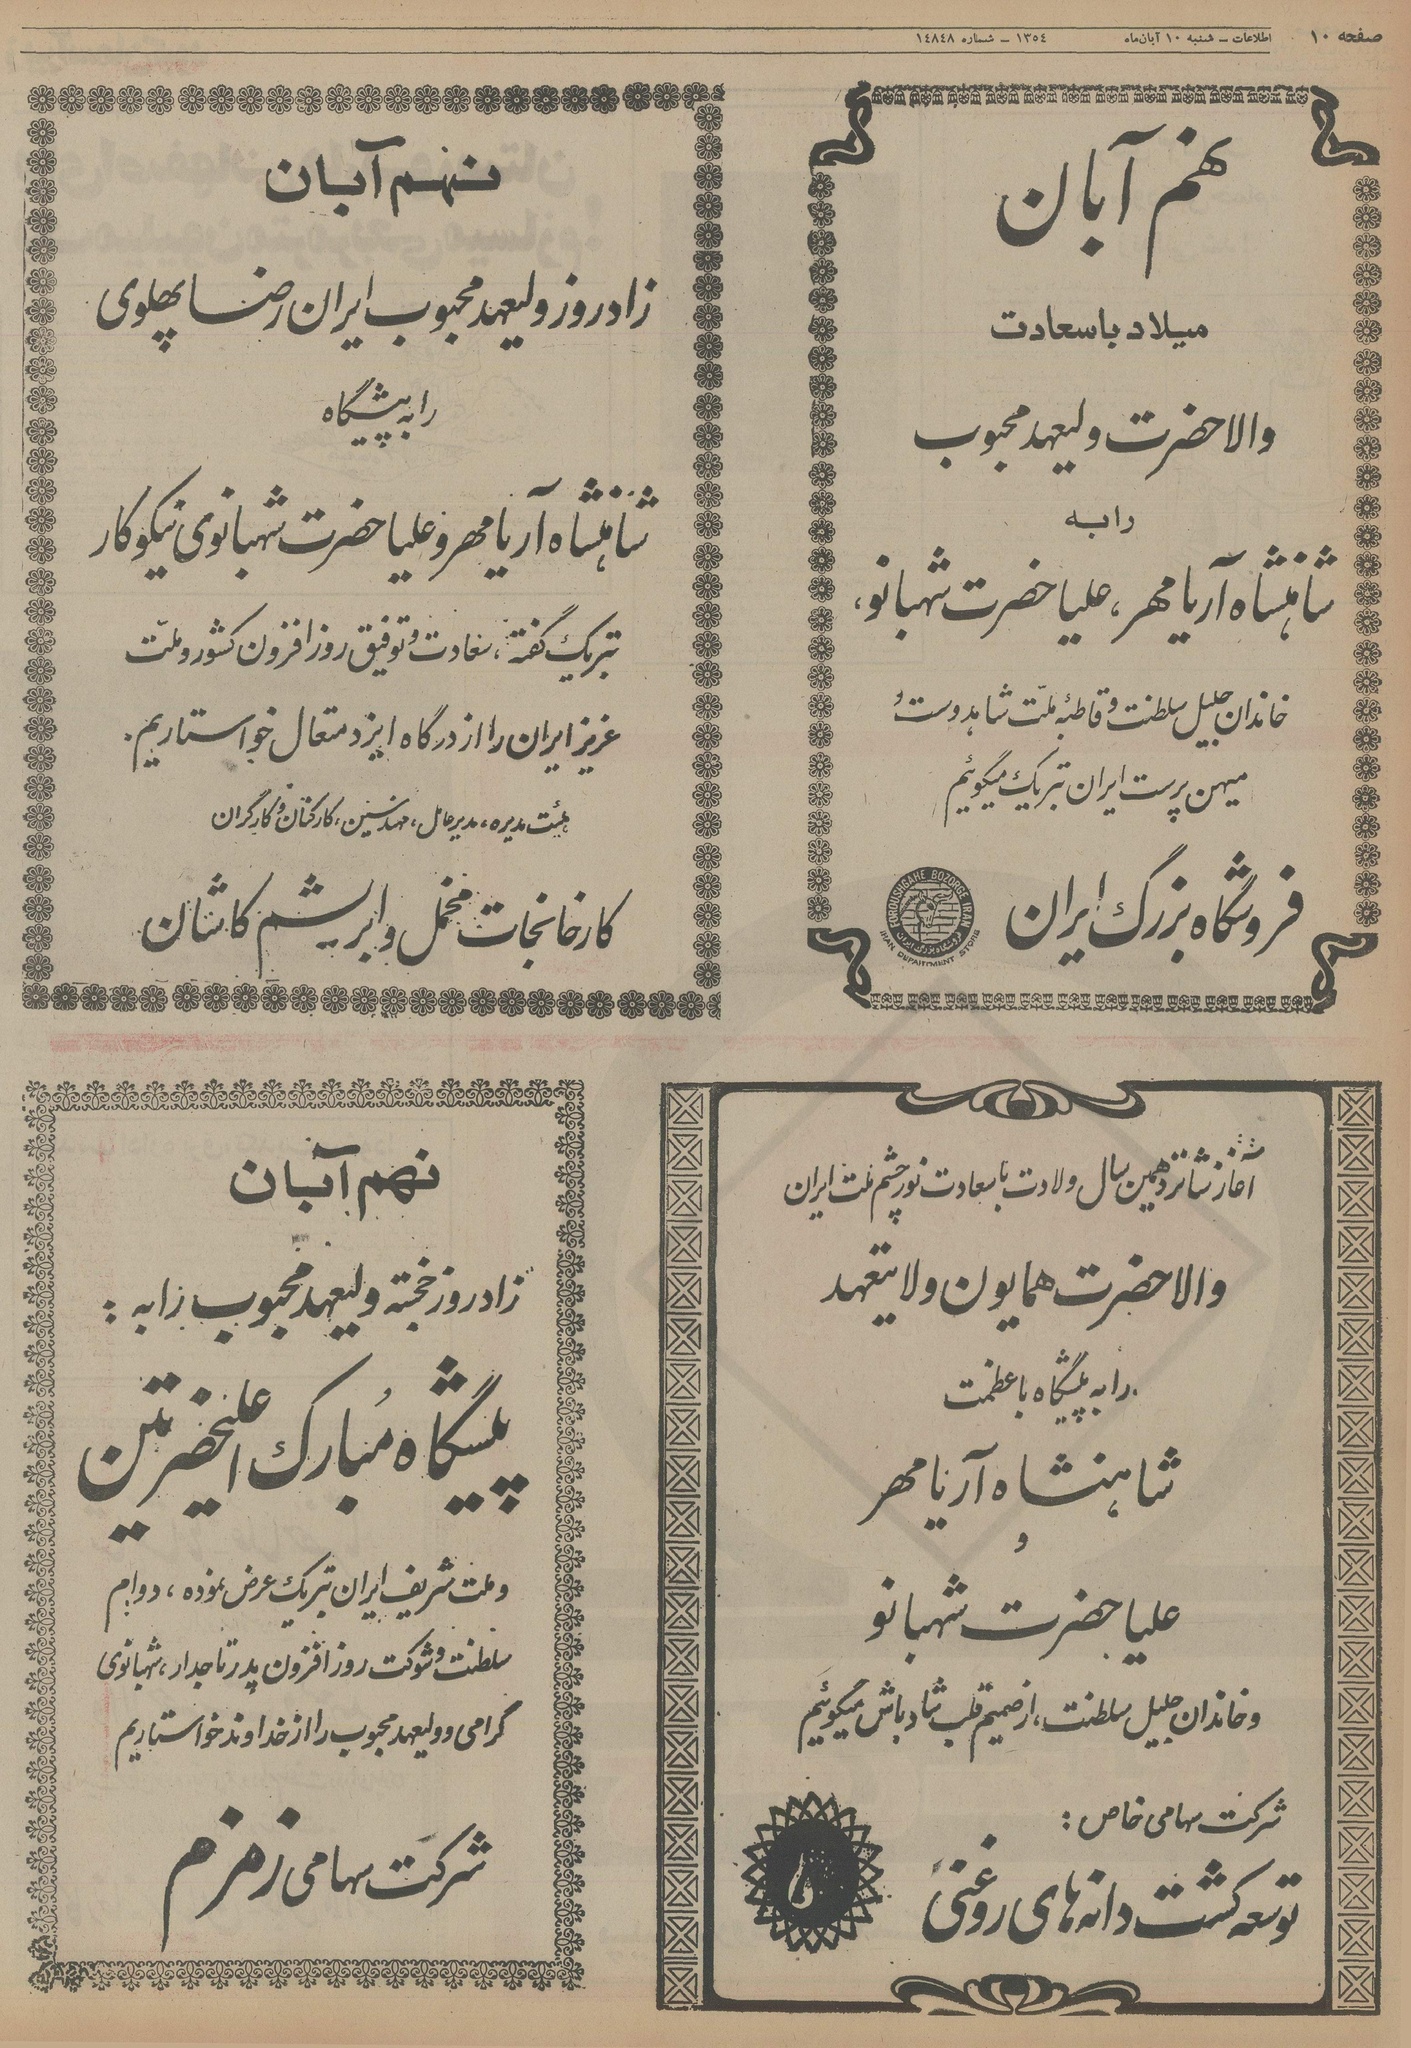 صفحه ۱۰
اطلاعات – شنبه ۱۰ آبان‌ماه ۱۳۵۴ – شماره ۱۴۸۴۸
نهم آبان
میلاد باسعادت
والاحضرت ولیعهد محبوب
را به
شاهنشاه آریامهر، علیاحضرت شهبانو،
خاندان جلیل سلطنت و قاطبهٔ ملّت شاهدوست و
میهن پرست ایران تبریک میگوئیم
فروشگاه بزرگ ایران
FOROUSHGAHE BOZORGE IRAN
فروشگاه بزرگ ایران
IRAN DEPARTMENT STORE
نهم آبان
زادروز ولیعهد محبوب ایران رضا پهلوی
را به پیشگاه
شاهنشاه آریامهر و علیاحضرت شهبانوی نیکوکار
تبریک گفته، سعادت و توفیق روز افزون کشور و ملّت
عزیز ایران را از درگاه ایزد متعال خواستاریم.
هیئت مدیره، مدیرعامل، مهندسین، کارکنان و کارگران
کارخانجات مخمل و ابریشم کاشان
آغاز شانزدهمین سال ولادت با سعادت نور چشم ملت ایران
والاحضرت همایون ولایتعهد
را به پیشگاه با عظمت
شاهنشاه آریامهر
و
علیاحضرت شهبانو
و خاندان جلیل سلطنت، از صمیم قلب شادباش میگوئیم
شرکت سهامی خاص :
توسعه کشت دانه های روغنی
نهم آبان
زادروز خجسته ولیعهد محبوب را به :
پیشگاه مبارک اعلیحضرتین
و ملت شریف ایران تبریک عرض نموده، دوام
سلطنت و شوکت روز افزون پدر تاجدار، شهبانوی
گرامی و ولیعهد محبوب را از خداوند خواستاریم
شرکت سهامی زمزم